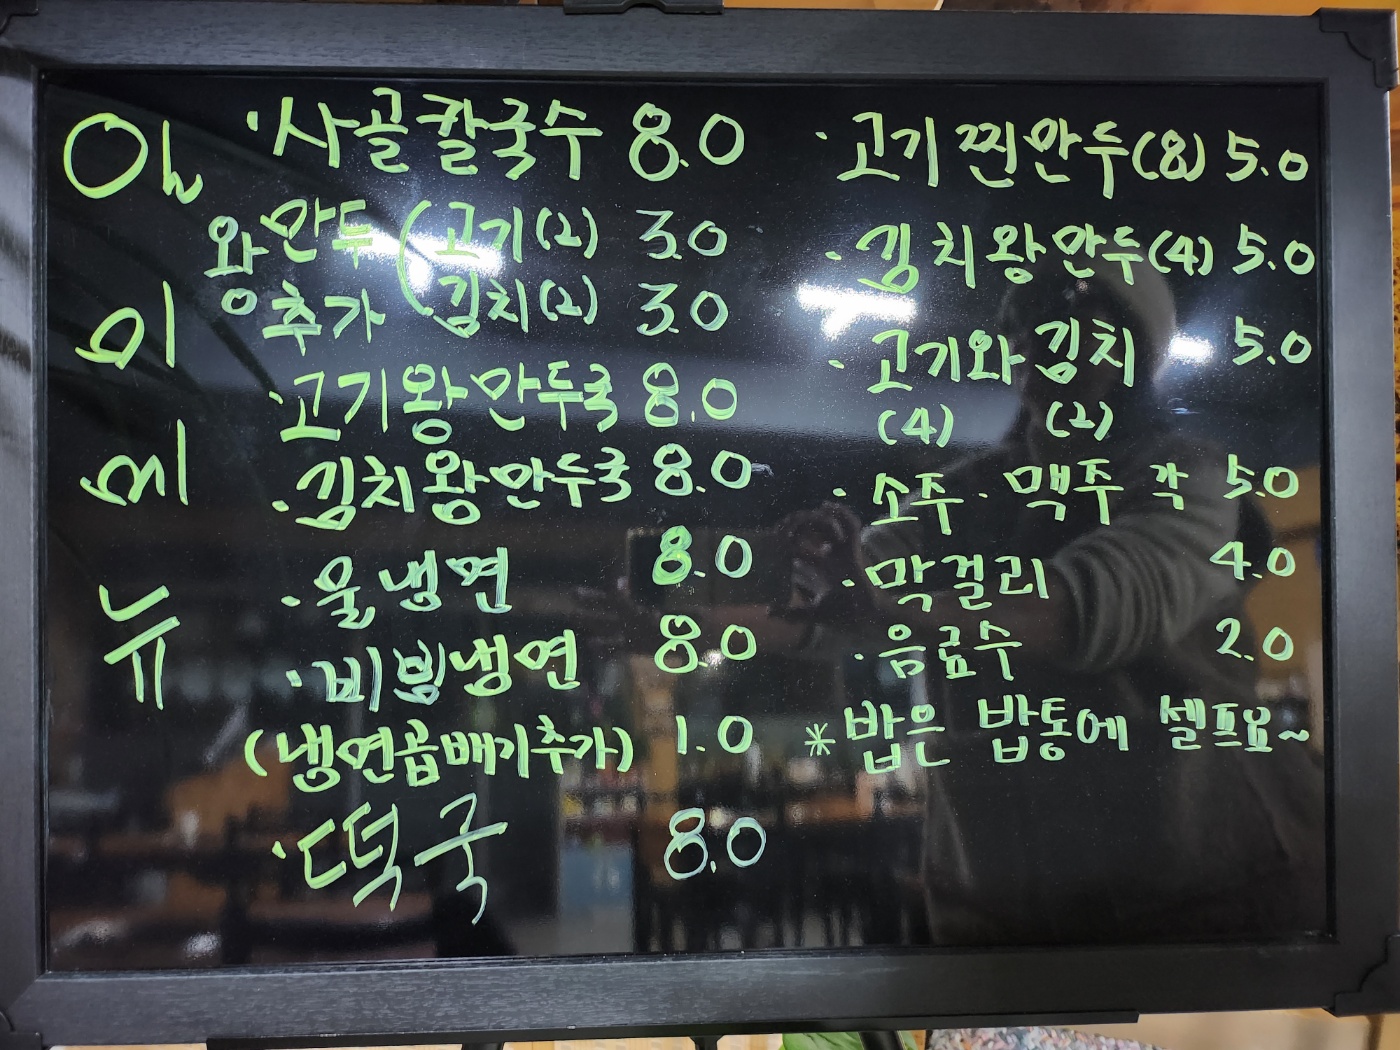 메
뉴
·사골칼국수 8.0
왕만두 (고기(2) 3.0
추가 (김치(2) 3.0
·고기왕만두국 8.0
·김치왕만두국 8.0
·물냉면 8.0
·비빔냉면 8.0
(냉면곱배기추가) 1.0
·떡국 8.0
·고기찐만두(8) 5.0
·김치왕만두(4) 5.0
·고기와 김치 5.0
(4) (2)
·소주·맥주 각 5.0
·막걸리 4.0
·음료수 2.0
*밥은 밥통에 셀프요~